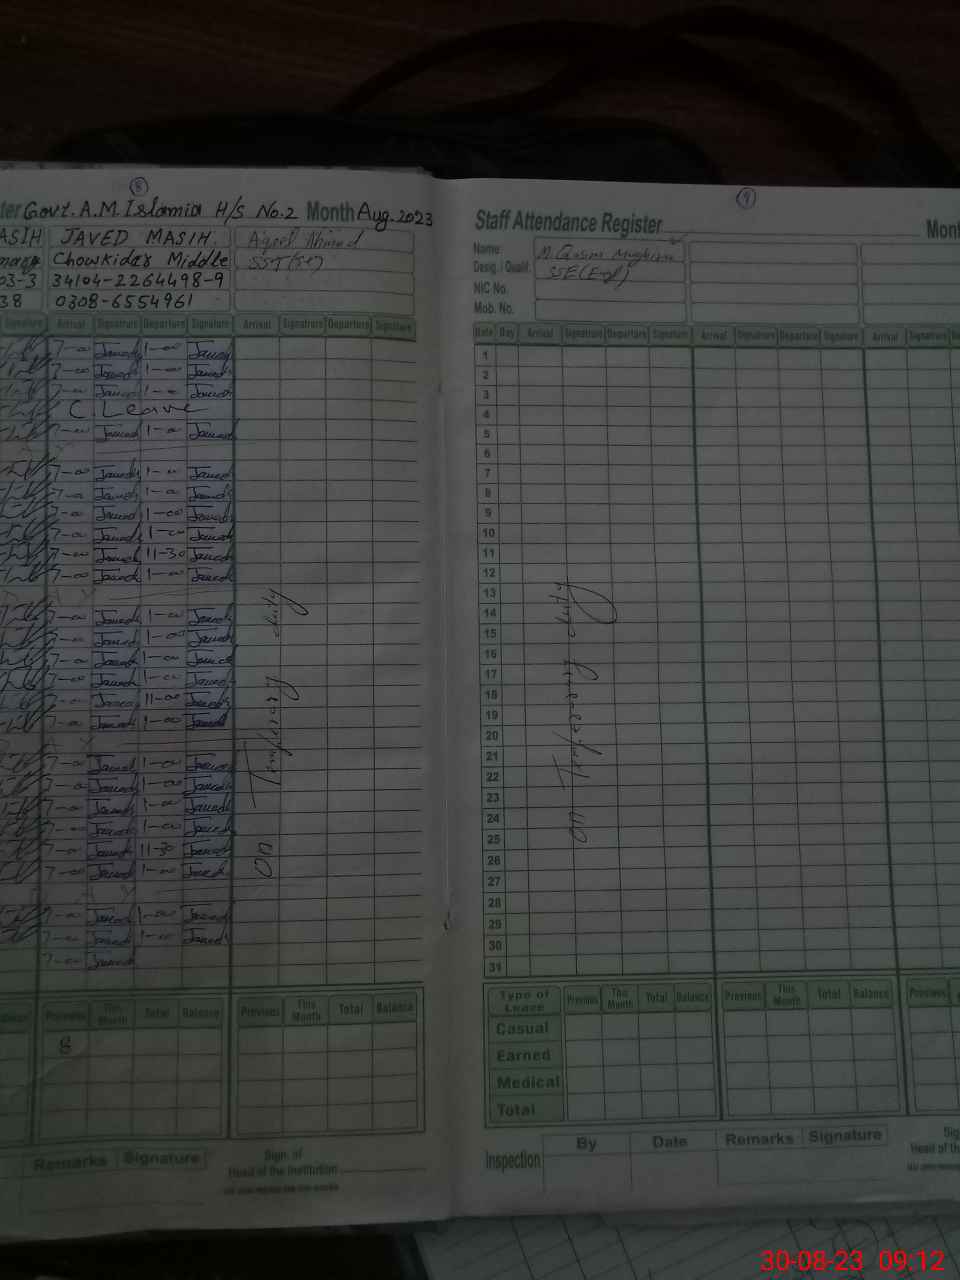 8
ter Govt. A.M. Islamia H/S No.2 Month Aug. 2023
ASIH JAVED MASIH. Aqeel Ahmad
Chowkidar Middle SST(Sc)
03-3 34104-2264498-9
38 0308-6554961
Signature Arrival Signature Departure Signature Arrival Signature Departure Signature
7-00 Javed 1-00 Javed
7-00 Javed 1-00 Javed
7-00 Javed 1-00 Javed
C. Leave
7-00 Javed 1-00 Javed
7-00 Javed 1-00 Javed
7-00 Javed 1-00 Javed
7-00 Javed 1-00 Javed
7-00 Javed 1-00 Javed
7-00 Javed 11-30 Javed
7-00 Javed 1-00 Javed
D A Y
7-00 Javed 1-00 Javed
7-00 Javed 1-00 Javed
7-00 Javed 1-00 Javed
7-00 Javed 1-00 Javed
7-00 Javed 11-00 Javed
7-00 Javed 1-00 Javed
D A Y
7-00 Javed 1-00 Javed
7-00 Javed 1-00 Javed
7-00 Javed 1-00 Javed
7-00 Javed 1-00 Javed
7-00 Javed 11-30 Javed
7-00 Javed 1-00 Javed
D A Y
7-00 Javed 1-00 Javed
7-00 Javed 1-00 Javed
7-00 Javed
on Tempererary duty
Previous This Month Total Balance Previous This Month Total Balance
8
Remarks Signature
Sign. of
Head of the Institution
9
Staff Attendance Register Mont
Name: M. Qasim
Desig. / Qualif. SSE(Eng)
NIC No.
Mob. No.
Date Day Arrival Signature Departure Signature Arrival Signature Departure Signature Arrival Signature
1
2
3
4
5
6
7
8
9
10
11
12
13
14
15
16
17
18
19
20
21
22
23
24
25
26
27
28
29
30
31
on Tempererary duty
Type of Leave Previous This Month Total Balance Previous This Month Total Balance Previous
Casual
Earned
Medical
Total
Inspection By Date Remarks Signature
Sig
Head of th
30-08-23 09:12